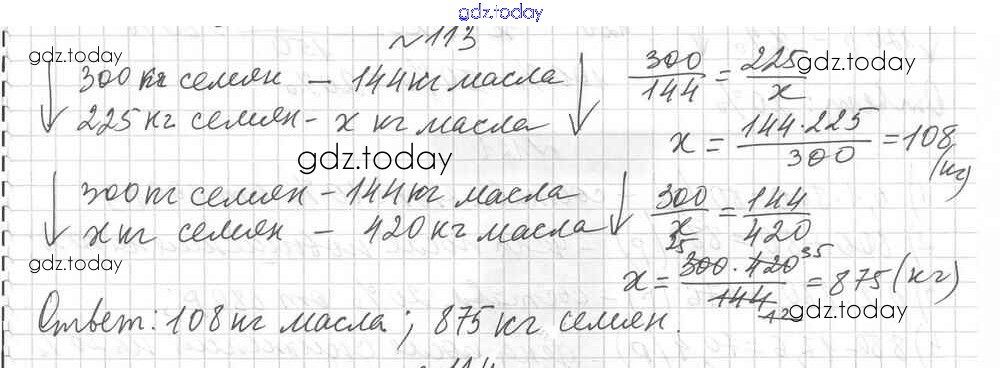 gdz.today
№113
gdz.today
300 кг семян – 144 кг масла
300/144 = 225/x
gdz.today
225 кг семян – x кг масла
x = 144·225/300 = 108 (кг)
gdz.today
300 кг семян – 144 кг масла
300/x = 144/420
x кг семян – 420 кг масла
gdz.today
25 35
x = 300·420/144 = 875 (кг)
12
gdz.today
Ответ: 108 кг масла; 875 кг семян.
114